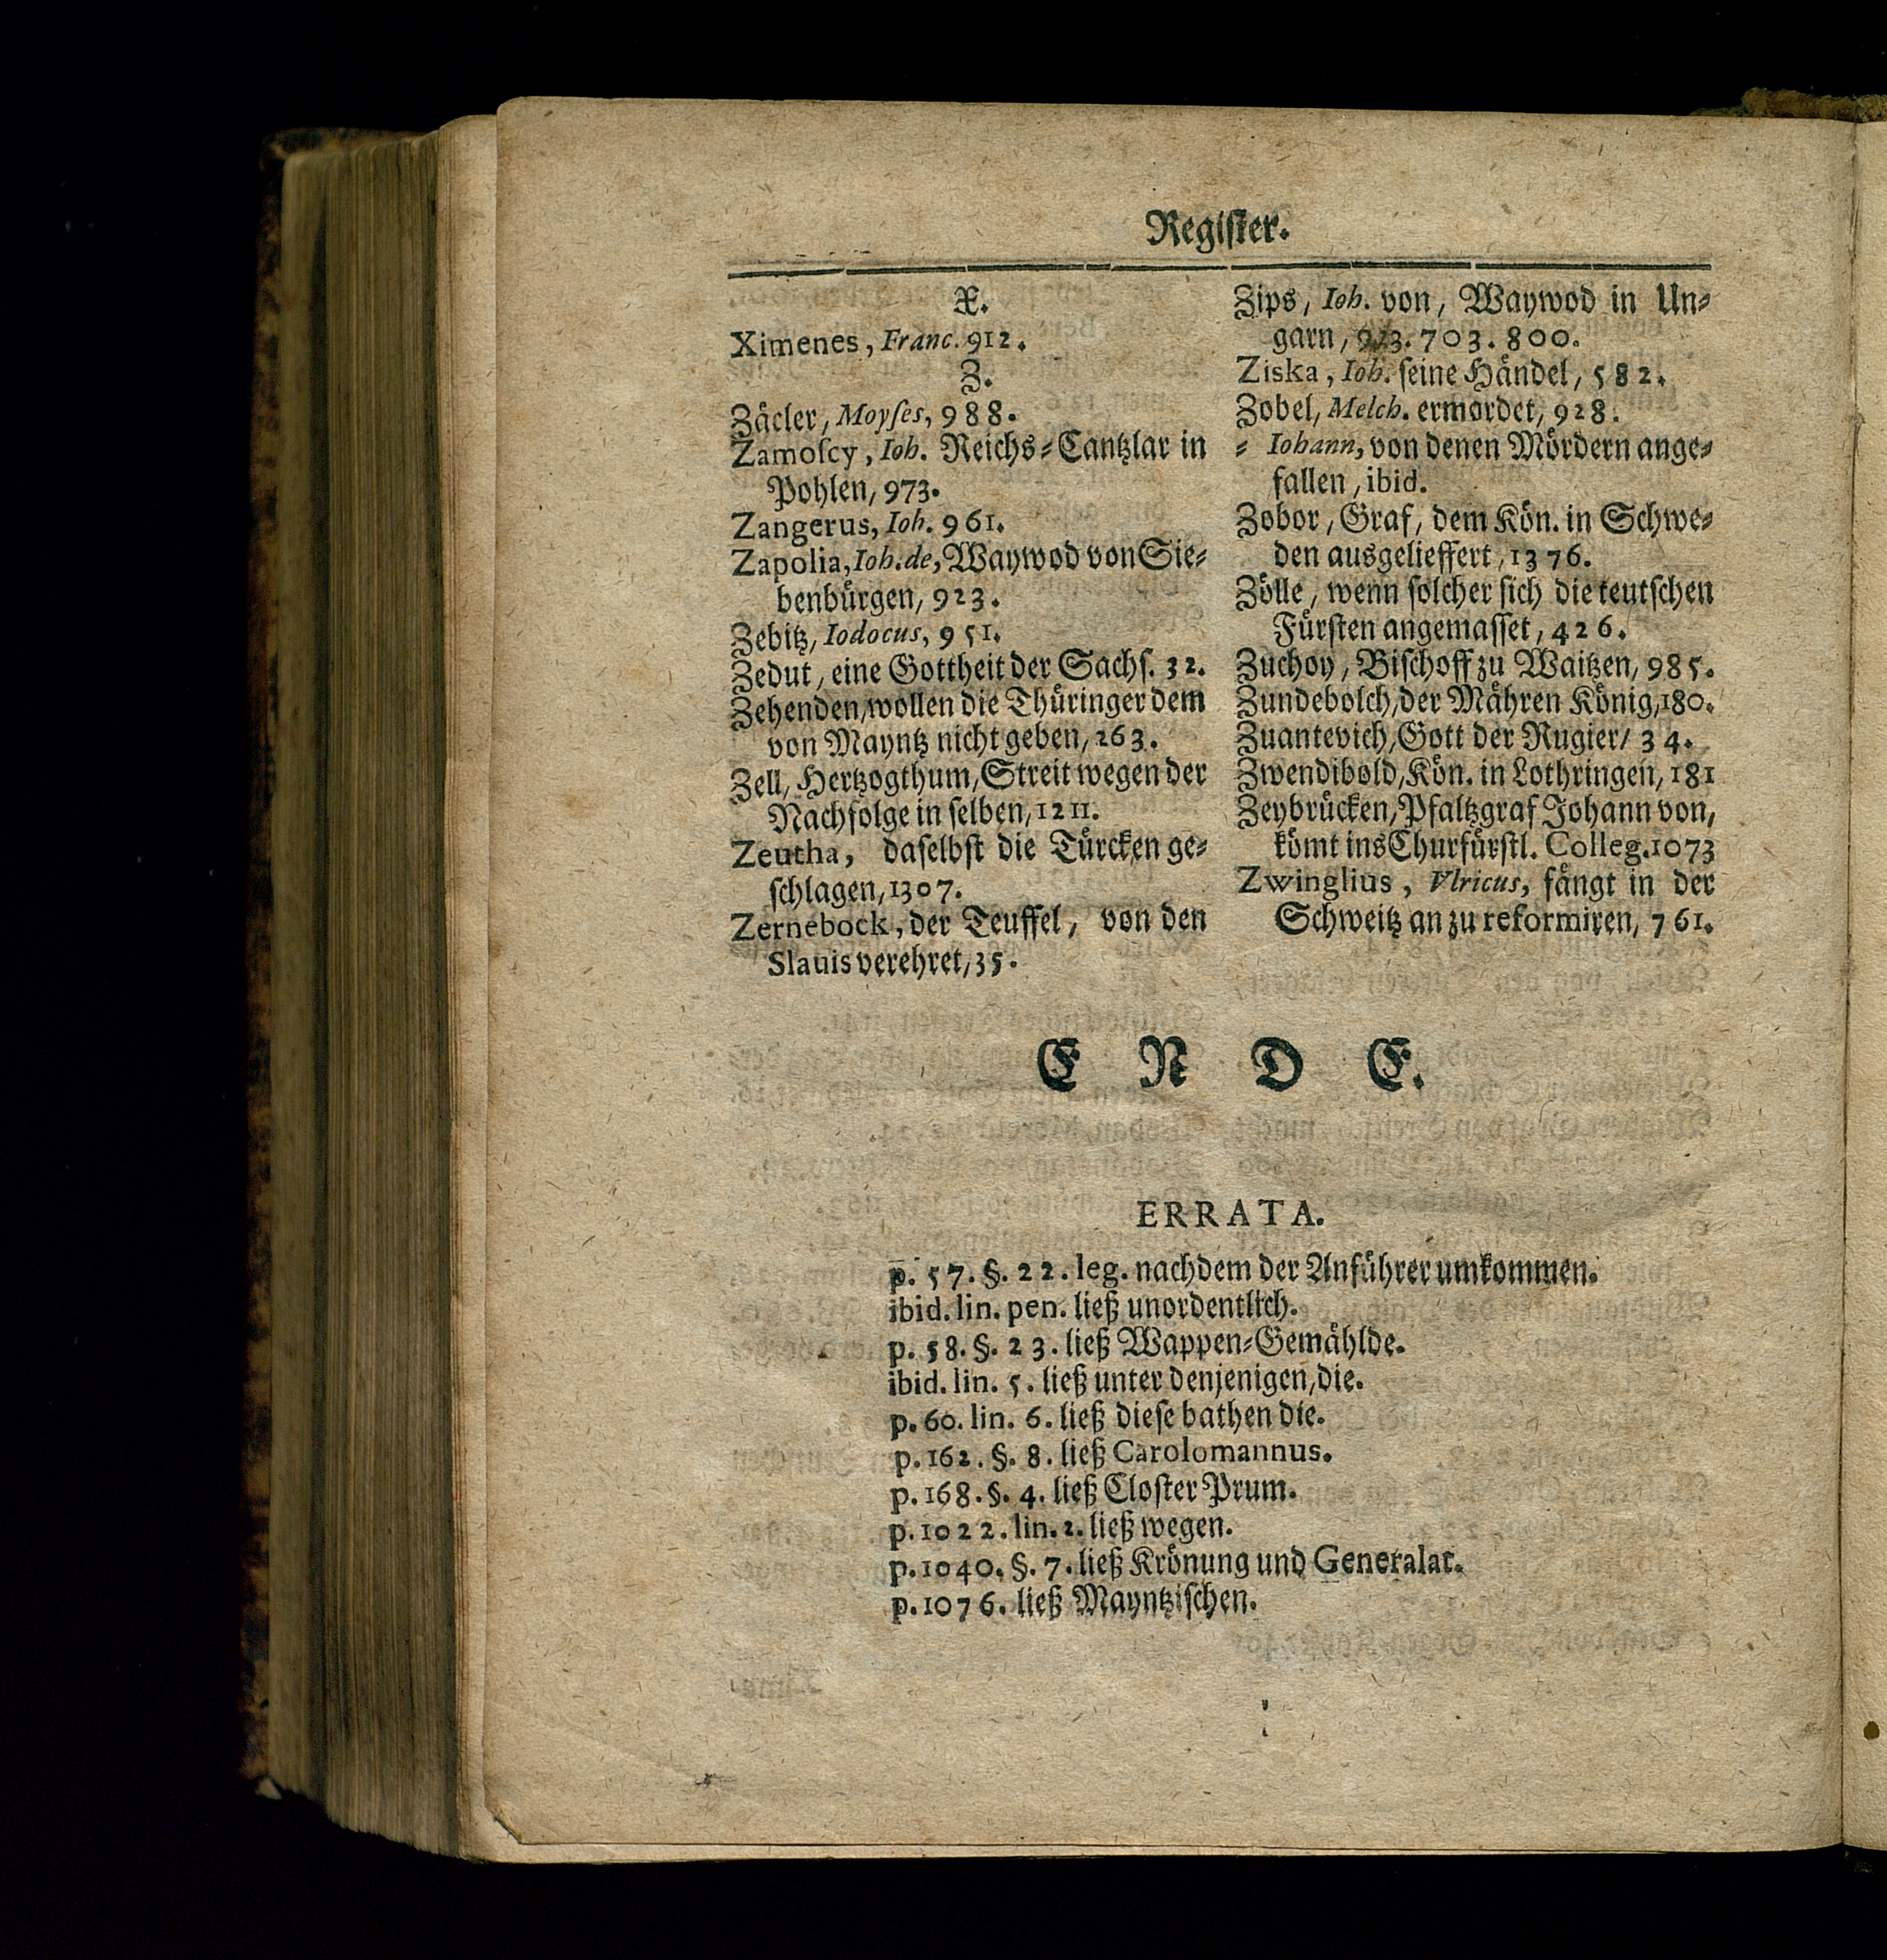 Regiſter.
X.
Ximenes, Franc. 912.
Z.
Zäcler, Moyſes, 988.
Zamoſcy, Ioh. Reichs-Cantzlar in
Pohlen, 973.
Zangerus, Ioh. 961.
Zapolia, Ioh. de, Waywod von Sie-
benbürgen, 923.
Zebitz, Iodocus, 951.
Zedut, eine Gottheit der Sachſ. 32.
Zehenden, wollen die Thüringer dem
von Mayntz nicht geben, 263.
Zell, Hertzogthum, Streit wegen der
Nachfolge in ſelben, 1211.
Zeutha, daſelbſt die Türcken ge-
ſchlagen, 1307.
Zernebock, der Teuffel, von den
Slauis verehret, 35.
Zips, Ioh. von, Waywod in Un-
garn, 703. 800.
Ziska, Ioh. ſeine Händel, 582.
Zobel, Melch. ermordet, 928.
- Iohann, von denen Mördern ange-
fallen, ibid.
Zobor, Graf, dem Kön. in Schwe-
den ausgelieffert, 1376.
Zölle, wenn ſolcher ſich die teutſchen
Fürſten angemaſſet, 426.
Zuchoy, Biſchoff zu Waitzen, 985.
Zundebolch, der Mähren König, 180.
Zuantevich, Gott der Rugier/ 34.
Zwendibold, Kön. in Lothringen, 181
Zeybrücken, Pfaltzgraf Johann von,
kömt ins Churfürſtl. Colleg. 1073
Zwinglius, Vlricus, fängt in der
Schweitz an zu reformiren, 761.
E N D E.
ERRATA.
p. 57. §. 22. leg. nachdem der Anführer umkommen.
ibid. lin. pen. ließ unordentlich.
p. 58. §. 23. ließ Wappen-Gemählde.
ibid. lin. 5. ließ unter denjenigen, die.
p. 60. lin. 6. ließ dieſe bathen die.
p. 162. §. 8. ließ Carolomannus.
p. 168. §. 4. ließ Cloſter Prum.
p. 1022. lin. 2. ließ wegen.
p. 1040. §. 7. ließ Krönung und Generalat.
p. 1076. ließ Mayntziſchen.